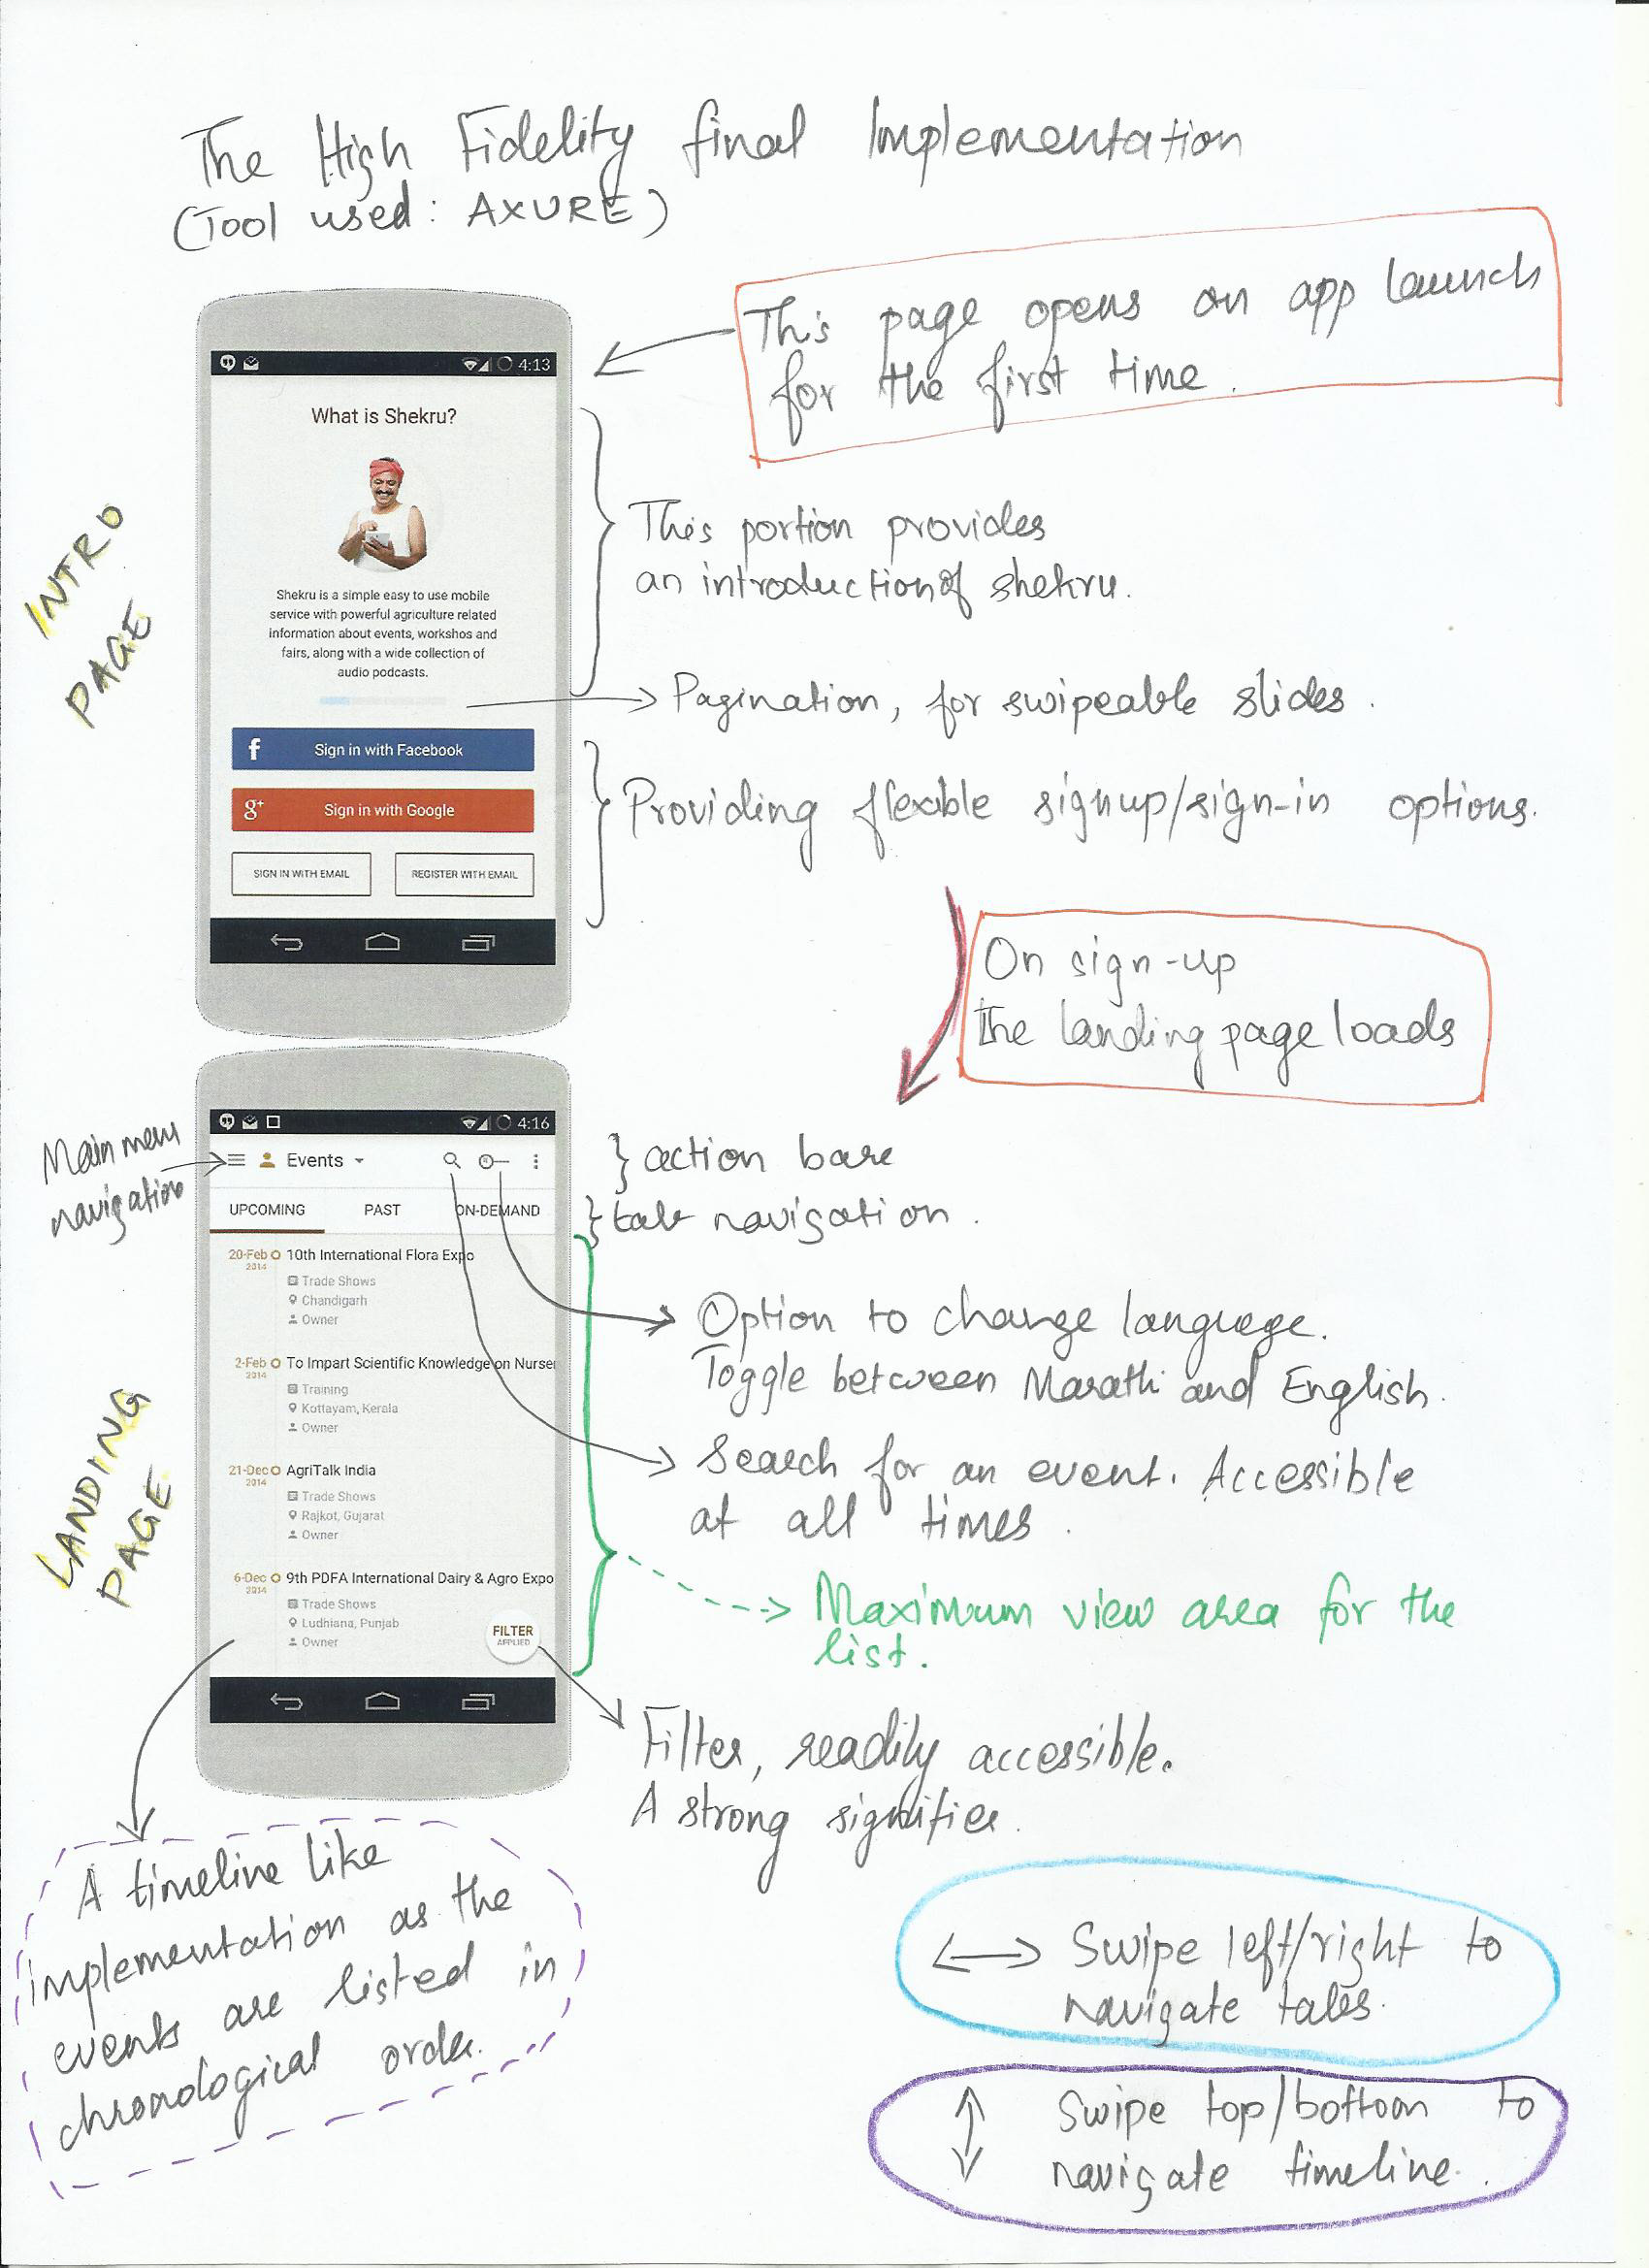 The High Fidelity final Implementation
(Tool used: AXURE)
This page opens on app launch
for the first time.
4:13
What is Shekru?
Shekru is a simple easy to use mobile
service with powerful agriculture related
information about events, workshos and
fairs, along with a wide collection of
audio podcasts.
f Sign in with Facebook
g+ Sign in with Google
SIGN IN WITH EMAIL
REGISTER WITH EMAIL
INTRO
PAGE
This portion provides
an introduction of shekru.
Pagination, for swipeable slides.
Providing flexible signup/sign-in options.
On sign-up
the landing page loads
Main menu
navigation
4:16
Events
UPCOMING PAST ON-DEMAND
20-Feb 10th International Flora Expo
2014
Trade Shows
Chandigarh
Owner
2-Feb To Impart Scientific Knowledge on Nurser
2014
Training
Kottayam, Kerala
Owner
21-Dec AgriTalk India
2014
Trade Shows
Rajkot, Gujarat
Owner
6-Dec 9th PDFA International Dairy & Agro Expo
2014
Trade Shows
Ludhiana, Punjab
Owner
FILTER
APPLIED
LANDING
PAGE
} action bar
} tab navigation.
Option to change language.
Toggle between Marathi and English.
Search for an event. Accessible
at all times.
Maximum view area for the
list.
Filter, readily accessible.
A strong signifier.
A timeline like
implementation as the
events are listed in
chronological order.
Swipe left/right to
navigate tabs.
Swipe top/bottom to
navigate timeline.